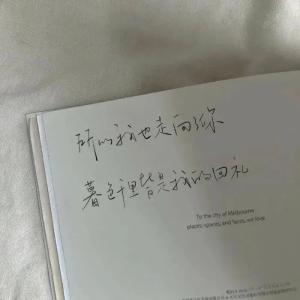 所以我也走向你
暮色千里皆是我的回礼
To the city of Melbourne
places, spaces, and faces, we love.